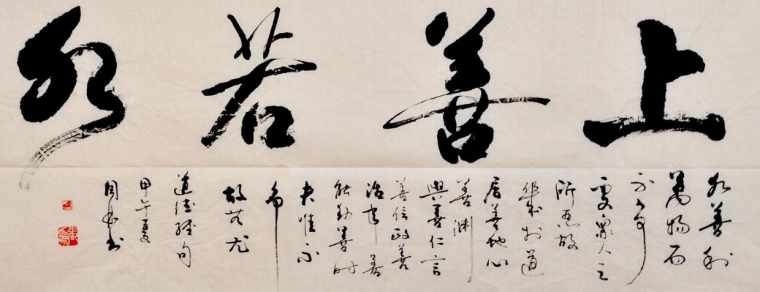 上善若水
水善利
萬物而
不爭
處衆人之
所惡故
幾於道
居善地心
善淵
與善仁言
善信政善
治事善
能動善時
夫惟不
爭
故無尤
道德經句
甲午夏
周書